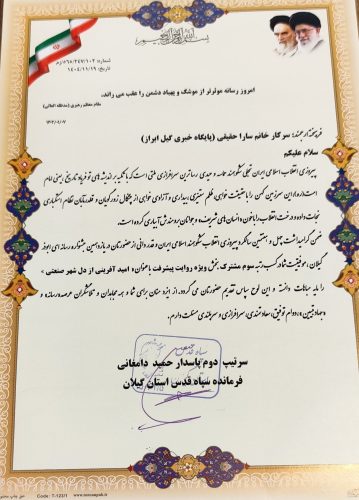 بسم الله الرحمن الرحیم
تاریخ: ۱۴۰۴/۱۱/۱۹
امروز رسانه موثرتر از موشک و پهپاد دشمن را عقب می راند.
مقام معظم رهبری (مدظله العالی)
فرهیخته ارجمند: سرکار خانم سارا حقیقی (پایگاه خبری گیل ابراز)
سلام علیکم
پیروزی انقلاب اسلامی ایران تجلی شکوهمند حماسه و سرافرازی ملتی است که با تکیه بر اندیشه های
است و در این سرزمین کهن را با حقیقت خواهی، ظلم ستیزی، بیداری و آزادی خواهی از چنگال زورگویان و قلدرمآبان نظام استکباری
نجات داده و درخت انقلاب را با خون انسان های شریف و جوانان برومندش آبیاری کرده است.
ضمن گرامیداشت چهل و هفتمین سالگرد پیروزی انقلاب شکوهمند اسلامی ایران و قدردانی از حضورتان در یازدهمین جشنواره رسانه ای ابوذر
گیلان، موفقیت شما در کسب رتبه سوم مشترک بخش ویژه روایت پیشرفت با عنوان « امید آفرینی از دل شهر صنعتی »
را مایه مباهات دانسته و این لوح سپاس تقدیم حضورتان می گردد. از ایزد منان برای شما و همه مجاهدان و تلاشگران عرصه رسانه و
جهاد تبیین، دوام توفیق، سعادتمندی، سرافرازی و سربلندی مسئلت دارم.
سرتیپ دوم پاسدار حمید دامغانی
فرمانده سپاه قدس استان گیلان
Code : T-123/1